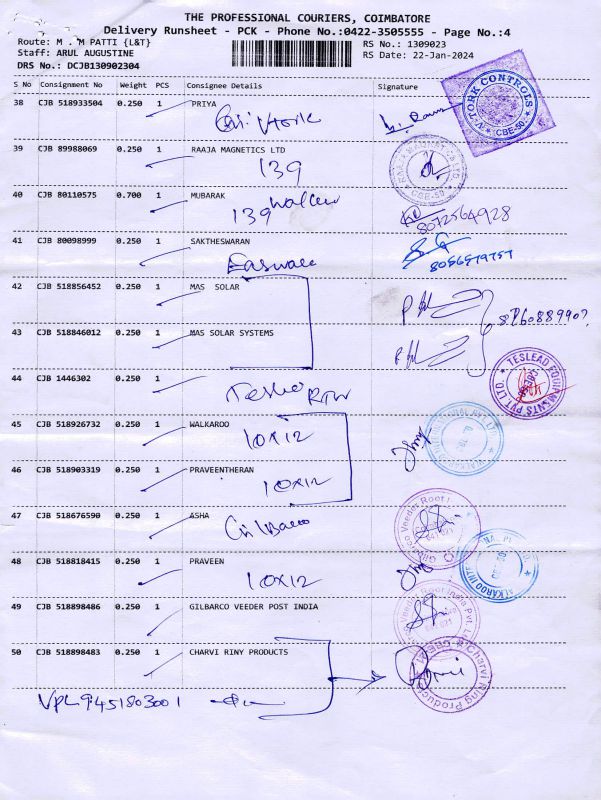 THE PROFESSIONAL COURIERS, COIMBATORE
Delivery Runsheet - PCK - Phone No.:0422-3505555 - Page No.:4
Route: M . M PATTI {L&T}
RS No.: 1309023
Staff: ARUL AUGUSTINE
RS Date: 22-Jan-2024
DRS No.: DCJB130902304
S No Consignment No Weight PCS Consignee Details Signature
38 CJB 518933504 0.250 1 PRIYA
V-TORK CONTROLS
CBE-50.
39 CJB 89988069 0.250 1 RAAJA MAGNETICS LTD
139
CBE-50
40 CJB 80110575 0.700 1 MUBARAK
139
8072564928
41 CJB 80098999 0.250 1 SAKTHESWARAN
Easwar
8056579757
42 CJB 518856452 0.250 1 MAS SOLAR
43 CJB 518846012 0.250 1 MAS SOLAR SYSTEMS
44 CJB 1446302 0.250 1
TESLEAD EQUIPMENTS PVT LTD.
45 CJB 518926732 0.250 1 WALKAROO
10x12
46 CJB 518903319 0.250 1 PRAVEENTHERAN
10x12
47 CJB 518676590 0.250 1 ASHA
Gilbarco
Gilbarco Veeder Root I
48 CJB 518818415 0.250 1 PRAVEEN
10x12
49 CJB 518898486 0.250 1 GILBARCO VEEDER POST INDIA
Veeder Root India Pvt. Lt
50 CJB 518898483 0.250 1 CHARVI RINY PRODUCTS
Charvi Ring Produc
VPL 9451803001